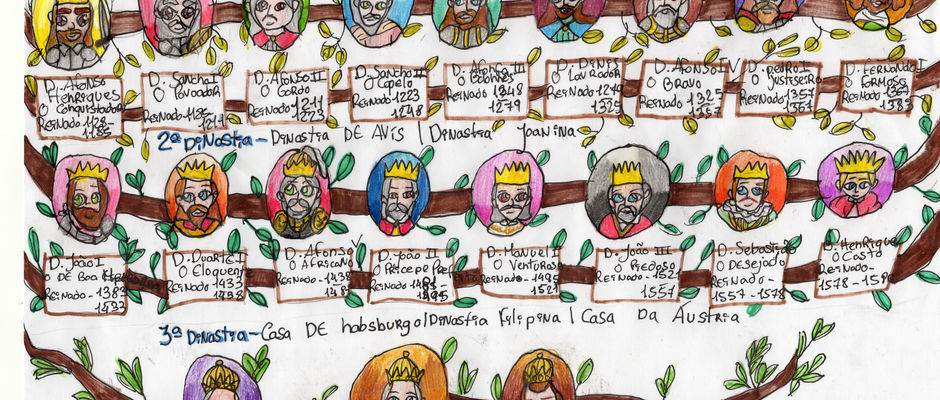 D. Afonso
Henriques
O Conquistador
Reinado 1128-
1185
D. Sancho I
O Povoador
Reinado 1185
1211
D. Afonso II
O Gordo
Reinado 1211
1223
D. Sancho II
O Capelo
Reinado 1223
1248
D. Afonso III
O Bolonhês
Reinado 1248
1279
D. Dinis
O Lavrador
Reinado 1279
1325
D. Afonso IV
O Bravo
Reinado 1325
1357
D. Pedro I
O Justiceiro
Reinado 1357
1367
D. Fernando I
O Formoso
Reinado 1367
1383
2ª Dinastia - Dinastia DE Avis | Dinastia Joanina
D. João I
O DE Boa
Reinado - 1385
1433
D. Duarte I
O Eloquente
Reinado 1433
1438
D. Afonso V
O Africano
Reinado - 1438
D. João II
Reinado
1495
D. Manuel I
O Venturoso
Reinado - 1495
1521
D. João III
O Piedoso
Reinado - 1521
1557
D. Sebastião
O DESejado
Reinado -
1557 - 1578
D. Henrique
O Casto
Reinado -
1578 - 1580
3ª Dinastia - Casa DE habsburgo | Dinastia Filipina | Casa Da Áustria